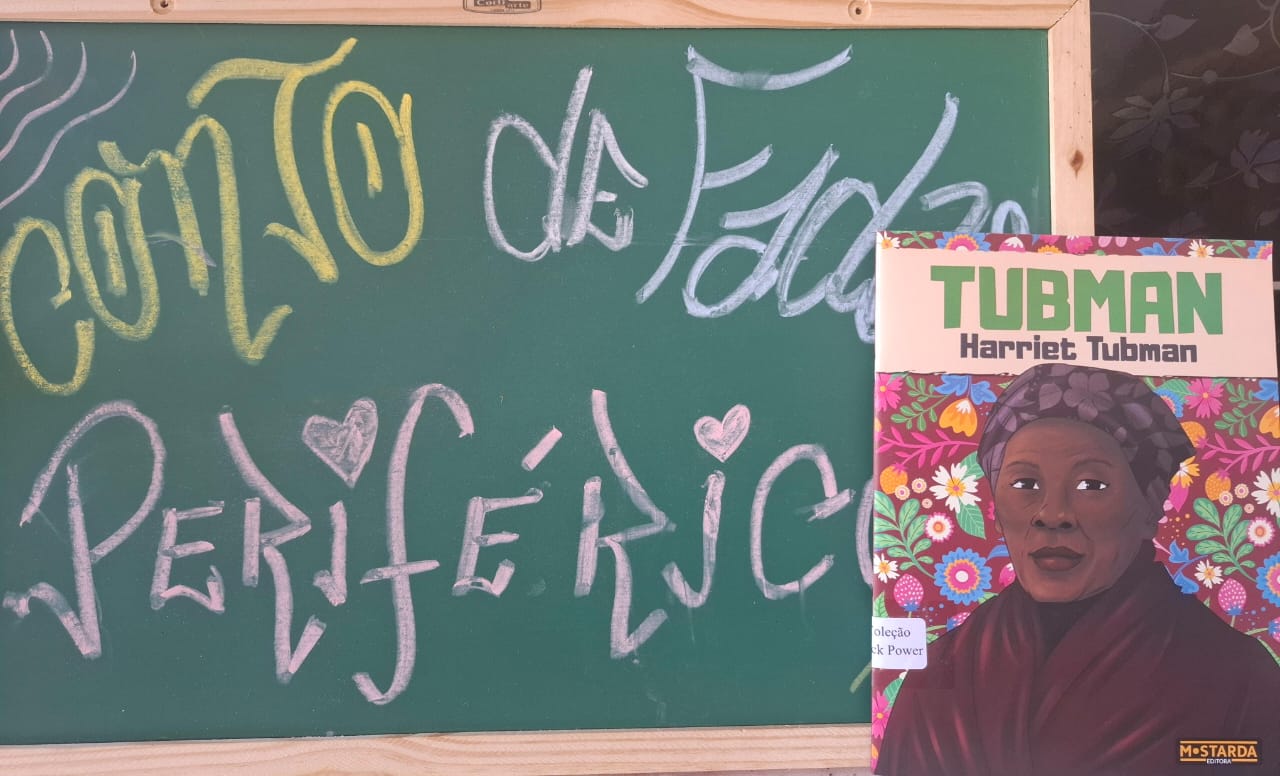 CONTO de Fadas
PERIFÉRICO
TUBMAN
Harriet Tubman
oleção
ck Power
MOSTARDA
EDITORA